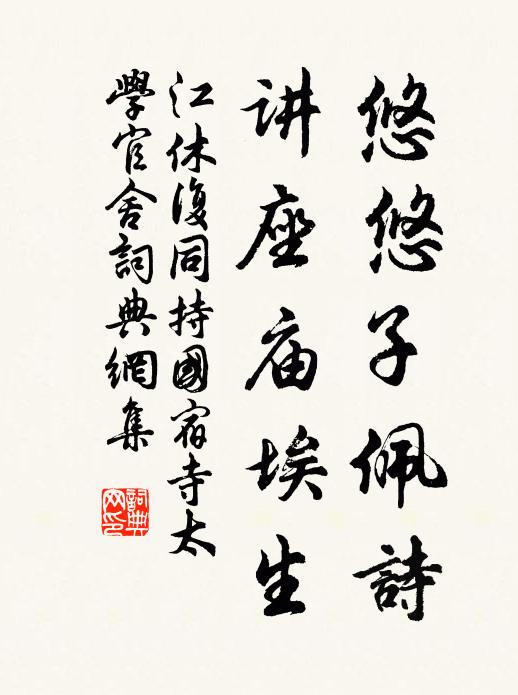 悠悠子佩詩
讲座庙埃生
江休復同持國宿寺太
學官舍詞典網集
詞典网印